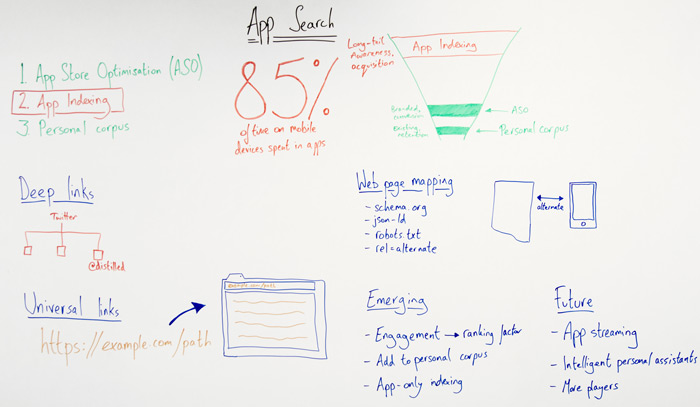 App Search
1. App Store Optimisation (ASO)
2. App Indexing
3. Personal corpus
85%
of time on mobile
devices spent in apps
Long-tail
Awareness,
acquisition
App Indexing
Branded,
ASO
Existing,
retention
Personal corpus
Deep links
Twitter
@distilled
Universal links
https://example.com/path
example.com/path
Web page mapping
- schema.org
- json-ld
- robots.txt
- rel=alternate
alternate
Emerging
- Engagement → ranking factor
- Add to personal corpus
- App-only indexing
Future
- App streaming
- Intelligent personal assistants
- More players